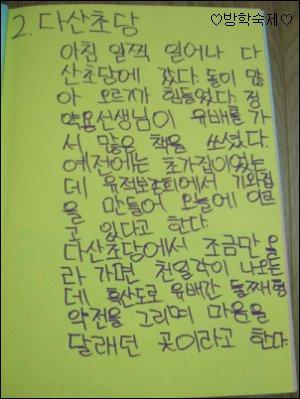 ♡방학숙제♡
2. 다산초당
아침 일찍 일어나 다
산초당에 갔다. 돌이 많
아 오르기가 힘들었다. 정
약용선생님이 유배를 가
서 많은 책을 쓰셨다.
예전에는 초가집이었는
데 유적보존회에서 기와집
을 만들어 오늘에 이르
고 있다고 한다.
다산초당에서 조금만 올
라 가면 천일각이 나오는
데 흑산도로 유배간 둘째형
약전을 그리며 마음을
달래던 곳이라고 한다.